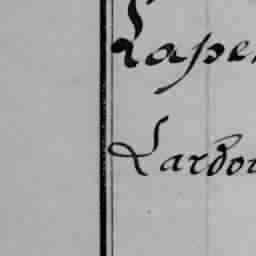 Lape
Lardou